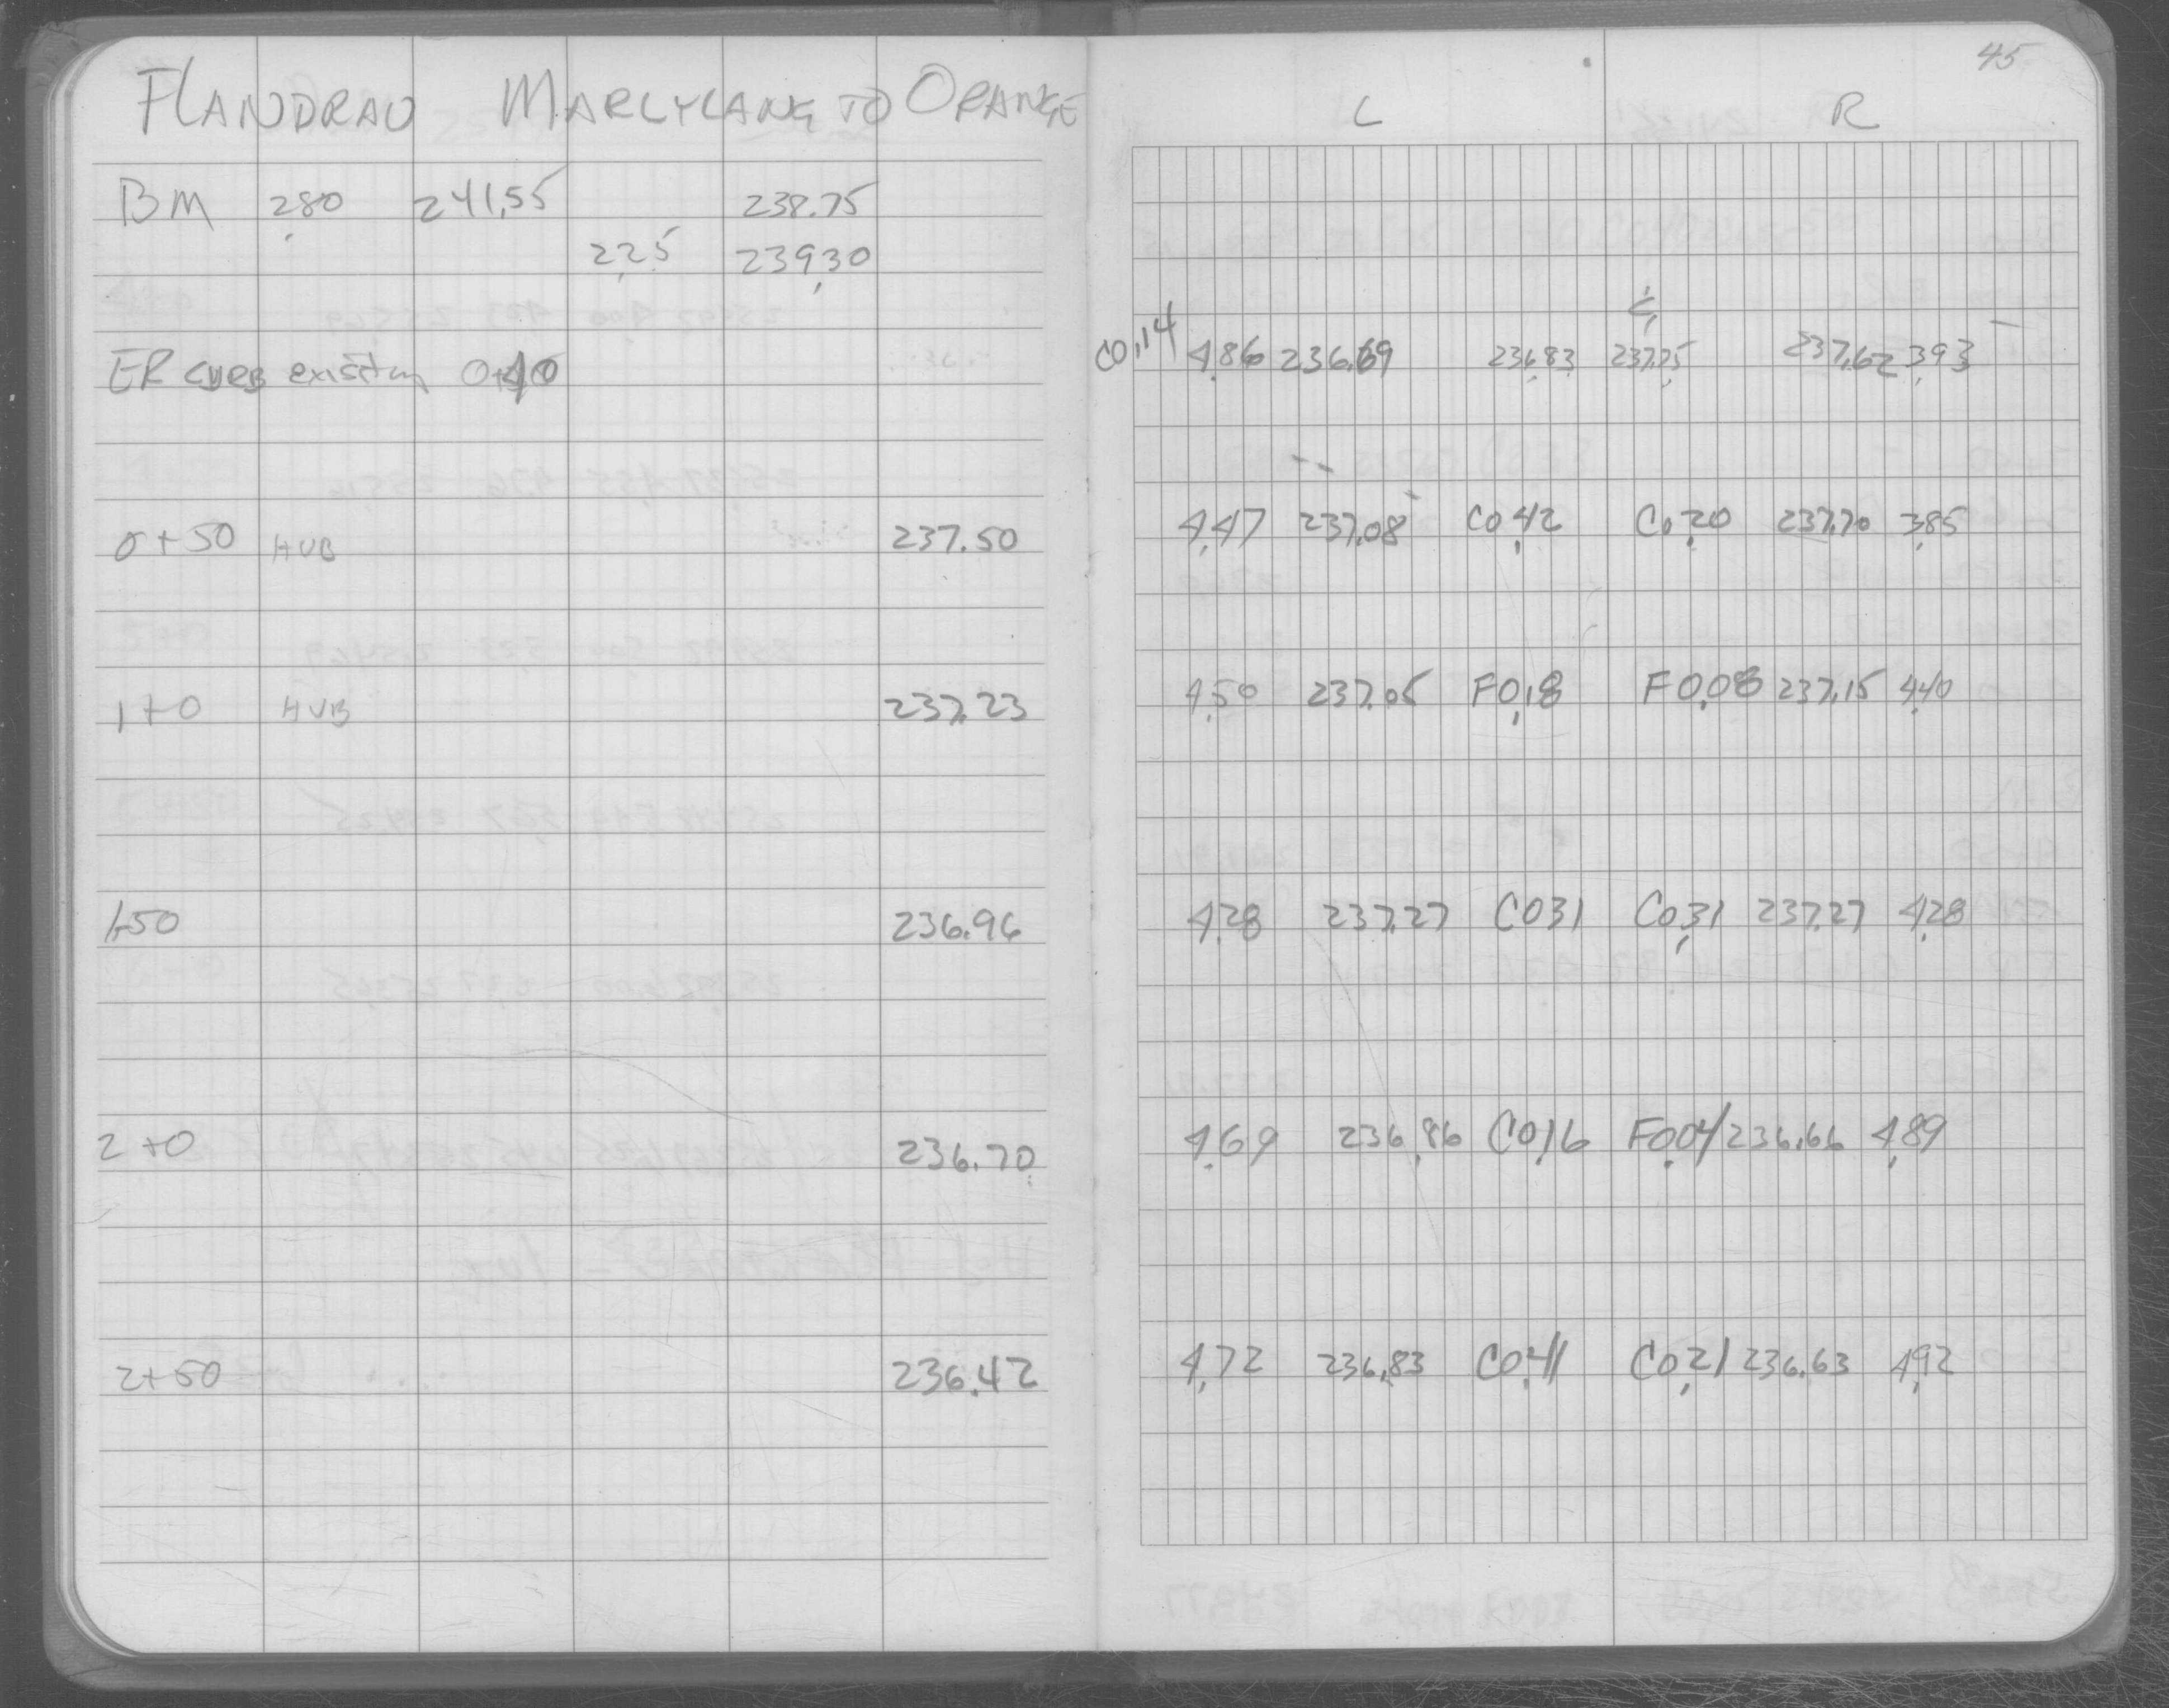 45
FLANDRAU MARLYLANE TO ORANGE
L R
BM 2.80 241.55 238.75
2.25 239.30
ER CURB existing 0+40 C0.14 4.86 236.69 236.83 237.75 237.62 3.93
0+50 HUB 237.50 4.47 237.08 C0.42 C0.20 237.70 3.85
1+0 HUB 237.23 4.50 237.05 F0.18 F0.08 237.15 4.40
1+50 236.96 4.28 237.27 C031 C0.31 237.27 4.28
2+0 236.70 4.69 236.86 C0.16 F0.04 236.66 4.89
2+50 236.42 4.72 236.83 C0.41 C0.21 236.63 4.92